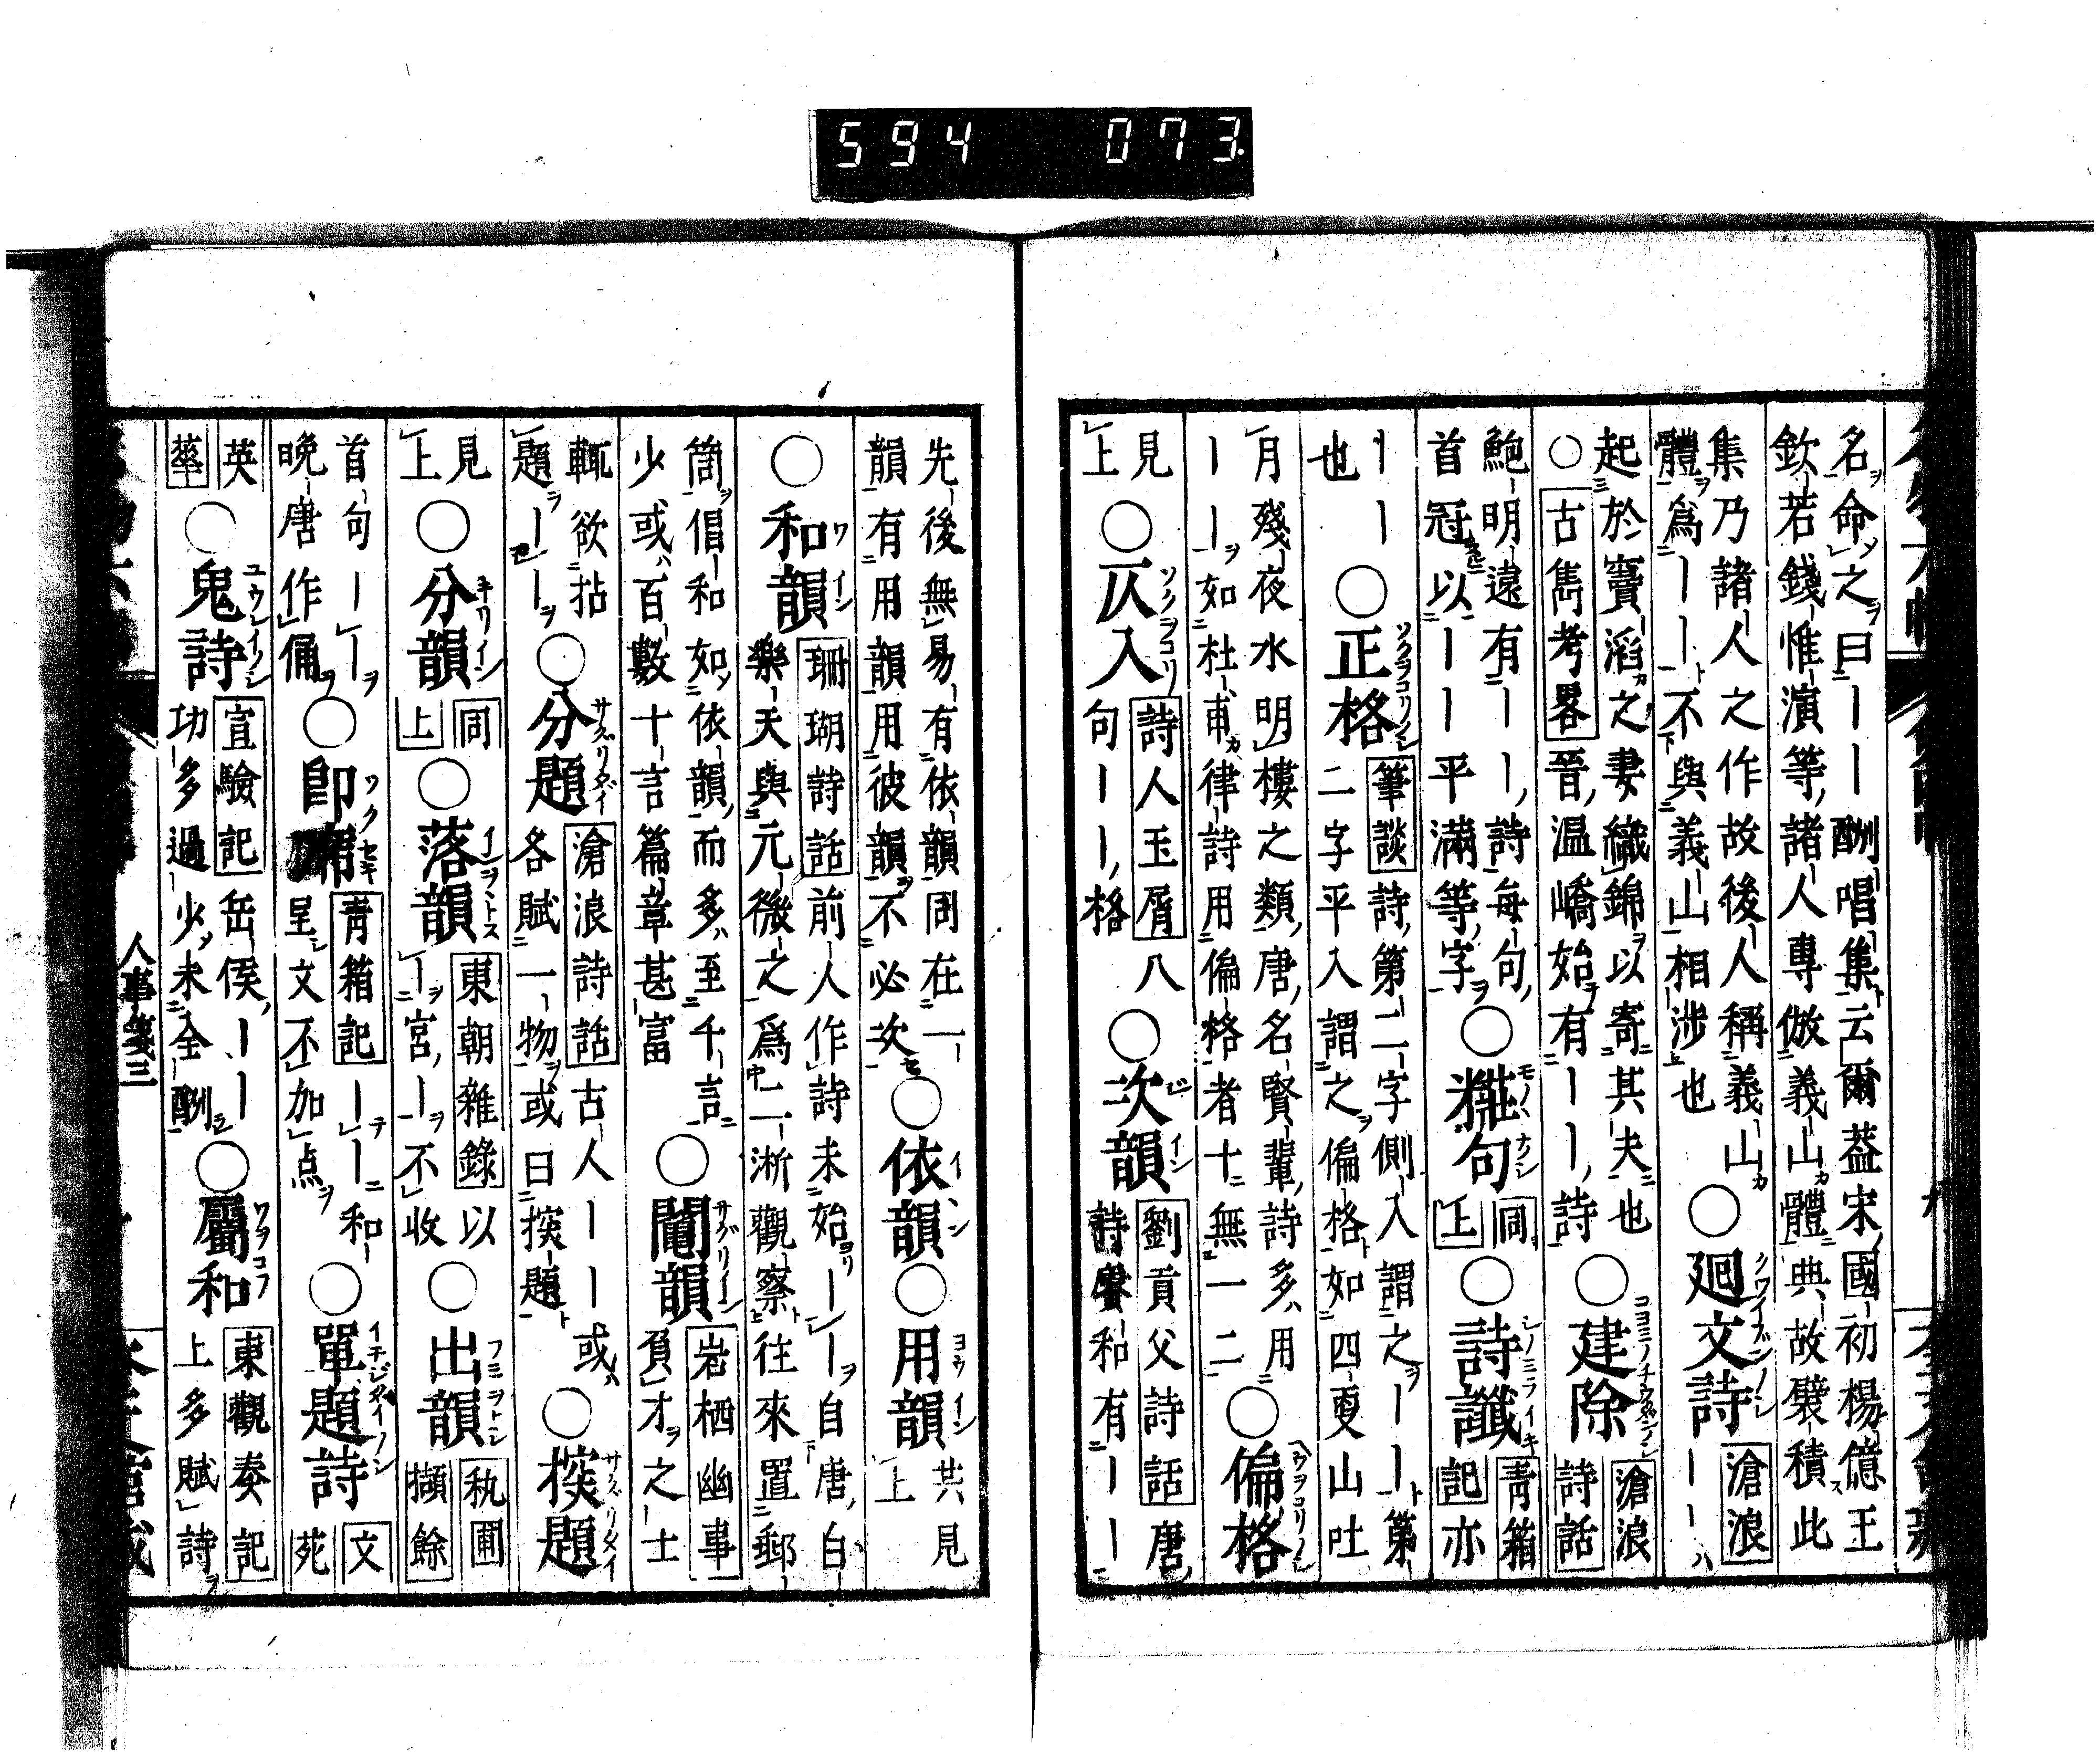 594 073
名命之曰｜｜酬唱集云爾葢宋國初楊億王
欽若錢惟演等諸人專倣義山體典故襞積此
集乃諸人之作故後人稱義山
體爲｜｜｜不與義山相涉也
○廻文詩
滄浪
｜｜
起於竇滔之妻織錦以寄其夫也
○古雋考畧晉溫嶠始有｜｜詩
○建除
滄浪
詩話
鮑明遠有｜｜詩每句
首冠以｜｜平滿等字
○糚句
同上
○詩讖
靑箱
記亦
｜｜
也
○正格
筆談詩第二字側入謂之｜｜第
二字平入謂之偏格如四更山吐
月殘夜水明樓之類唐名賢輩詩多用
｜｜如杜甫律詩用偏格者十無一二
○偏格
見上
○仄入
詩人玉屑八
句｜｜格
○次韻
劉貢父詩話唐
詩賡和有｜｜
先後無易有依韻同在一
韻有用韻用彼韻不必次
○依韻
○用韻
共見上
○和韻
珊瑚詩話前人作詩未始｜｜自唐白
樂天與元微之爲二浙觀察往來置郵
筒倡和如依韻而多至千言
少或百數十言篇章甚富
○鬮韻
岩栖幽事
負才之士
輒欲拈
題｜｜
○分題
滄浪詩話古人｜｜或
各賦一物或曰探題
○探題
見上
○分韻
同上
○落韻
東朝雜錄以
｜宮｜不收
○出韻
秇圃
擷餘
首句｜｜
晚唐作俑
○卽席
靑箱記｜｜和
呈文不加点
○單題詩
文苑
英華
○鬼詩
宣驗記岳侯｜｜
功多過少未全酬
○屬和
東觀奏記
上多賦詩
人事箋三